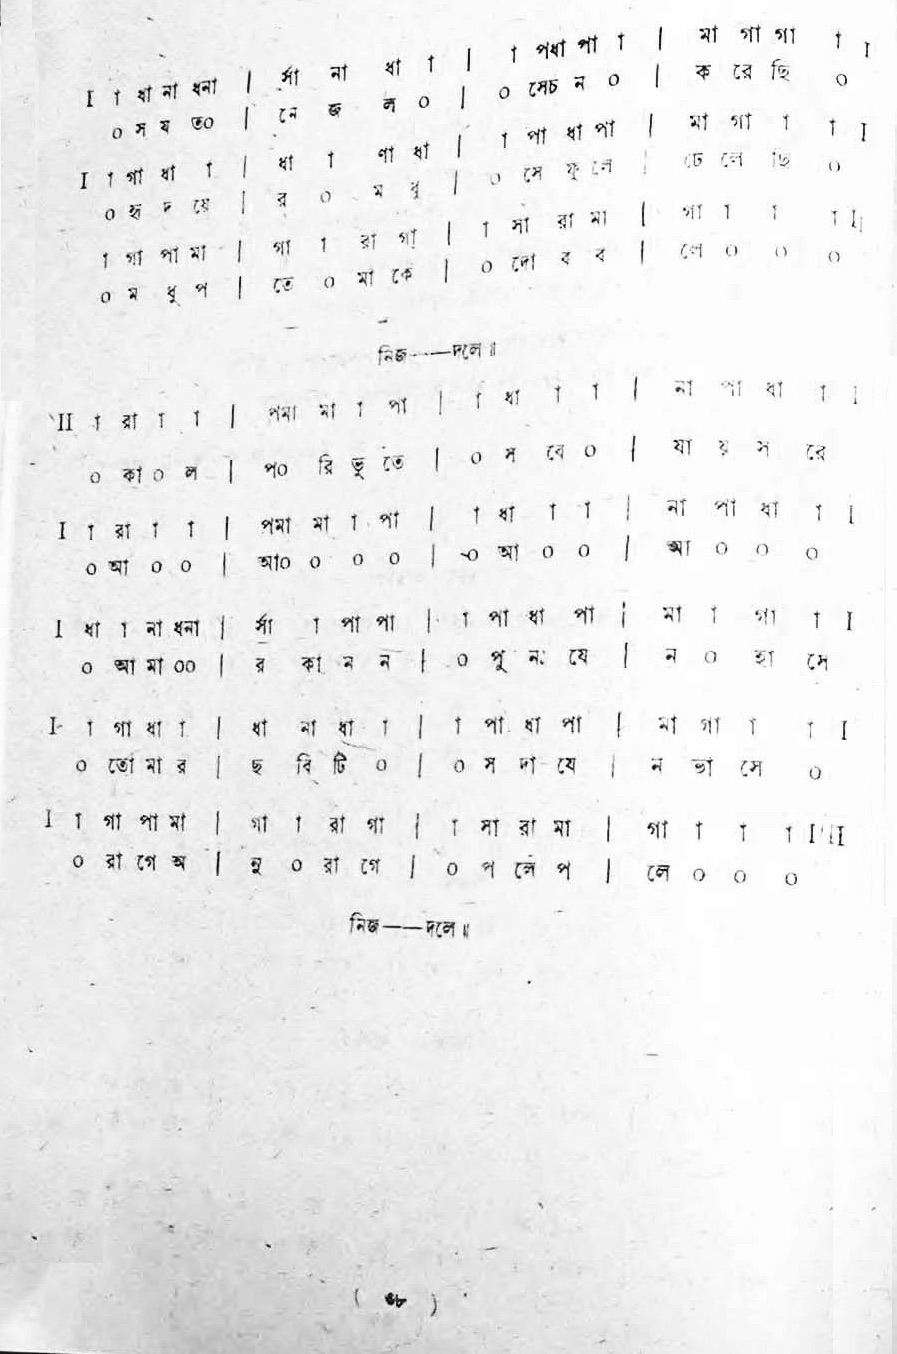 I া ধা না ধনা | র্সা না ধা া | া পধা পা া | মা গা গা া I
০ স য ত০ | নে জ ল ০ | ০ সেচ ন ০ | ক রে ছি ০
I া গা ধা া | ধা া ণা ধা | া পা ধা পা | মা গা া া I
০ হৃ দ য়ে | র ০ ম ধু | ০ সে ফু লে | ঢে লে ছি ০
া গা পা মা | গা া রা গা | া সা রা মা | গা া া া II
০ ম ধু প | তে ০ মা কে | ০ দো ব ব | লে ০ ০ ০
নিজ——দলে॥
II া রা া া | পমা মা া পা | া ধা া া | না পা ধা া I
০ কা ০ ল | প০ রি ভূ তে | ০ স বে ০ | যা য় স রে
I া রা া া | পমা মা া পা | া ধা া া | না পা ধা া I
০ আ ০ ০ | আ০ ০ ০ ০ | ০ আ ০ ০ | আ ০ ০ ০
I ধা া না ধনা | র্সা া পা পা | া পা ধা পা | মা া গা া I
০ আ মা ০০ | র কা ন ন | ০ পু নঃ যে | ন ০ হা সে
I া গা ধা া | ধা না ধা া | া পা ধা পা | মা গা া া I
০ তো মা র | ছ বি টি ০ | ০ স দা যে | ন ভা সে ০
I া গা পা মা | গা া রা গা | া সা রা মা | গা া া া I II
০ রা গে অ | নু ০ রা গে | ০ প লে প | লে ০ ০ ০
নিজ——দলে॥
( ৩৮ )